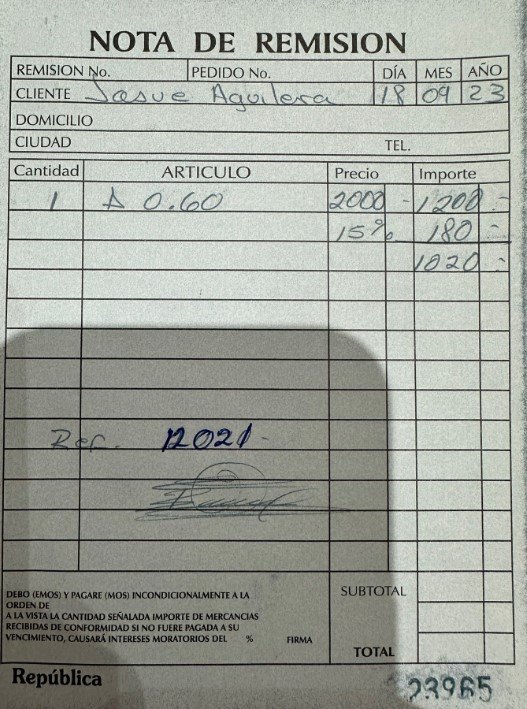 NOTA DE REMISION
REMISION No. PEDIDO No. DÍA MES AÑO
CLIENTE Josue Aguilera 18 09 23
DOMICILIO
CIUDAD TEL.
Cantidad ARTICULO Precio Importe
1 A 0.60 2000 - 1200 :-
15% 180 :-
1020 :-
Ref. 12021-
DEBO (EMOS) Y PAGARE (MOS) INCONDICIONALMENTE A LA
ORDEN DE
A LA VISTA LA CANTIDAD SEÑALADA IMPORTE DE MERCANCIAS
RECIBIDAS DE CONFORMIDAD SI NO FUERE PAGADA A SU
VENCIMIENTO, CAUSARÁ INTERESES MORATORIOS DEL % FIRMA
SUBTOTAL
TOTAL
República
23965